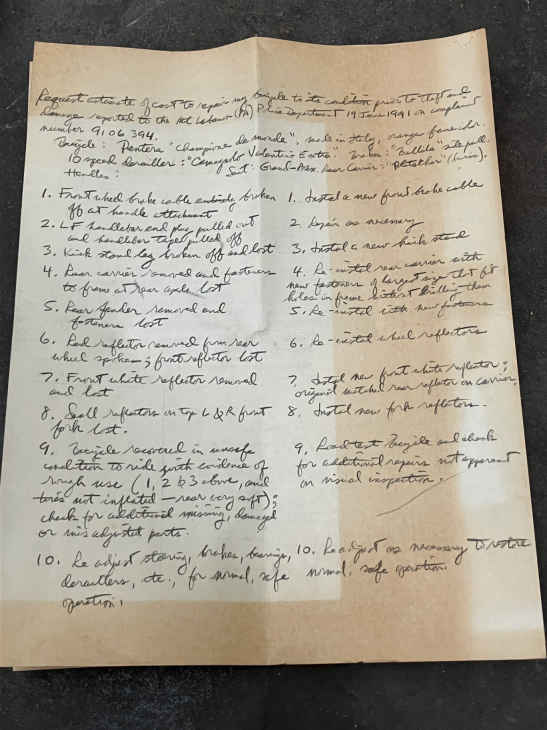 Request estimate of cost to repair my bicycle to its condition prior to theft and
damages reported to the Mt Lebanon (PA) Police Department 19 June 1991 on complaint
number 9106394.
Bicycle: Pantera "Champione de monde", made in Italy, orange
10 speed derailler: "Campagnolo Valentino Extra". Brakes: "Balilla" side pull.
Handles: Seat: Rear Carrier: "Pletscher" (Swiss).
1. Front wheel brake cable entirely broken
off at handle attachment
2. LF handlebar end plug pulled out
and handlebar tape pulled off
3. Kick stand leg broken off and lost
4. Rear carrier removed and fasteners
to frame at rear axle lost
5. Rear fender removed and
fasteners lost
6. Red reflector removed from rear
wheel spokes; front reflector lost
7. Front white reflector removed
and lost
8. Small reflectors on top L & R front
fork lost.
9. Bicycle recovered in unsafe
condition to ride with evidence of
rough use (1, 2 & 3 above, and
tires not inflated – rear very soft);
check for additional missing, damaged
or misadjusted parts.
10. Re adjust steering, brakes, bearings,
deraillers, etc., for normal, safe
operation.
1. Install a new front brake cable
2. Repair as necessary
3. Install a new kick stand
4. Re-install rear carrier with
new fasteners of largest size that fit
holes in frame without drilling them
5. Re-install with new fasteners
6. Re-install wheel reflectors
7. Install new front white reflector;
original switched rear reflector on carrier.
8. Install new fork reflectors.
9. Road test bicycle and check
for additional repairs not apparent
on visual inspection.
10. Re adjust as necessary to restore
normal, safe operation.